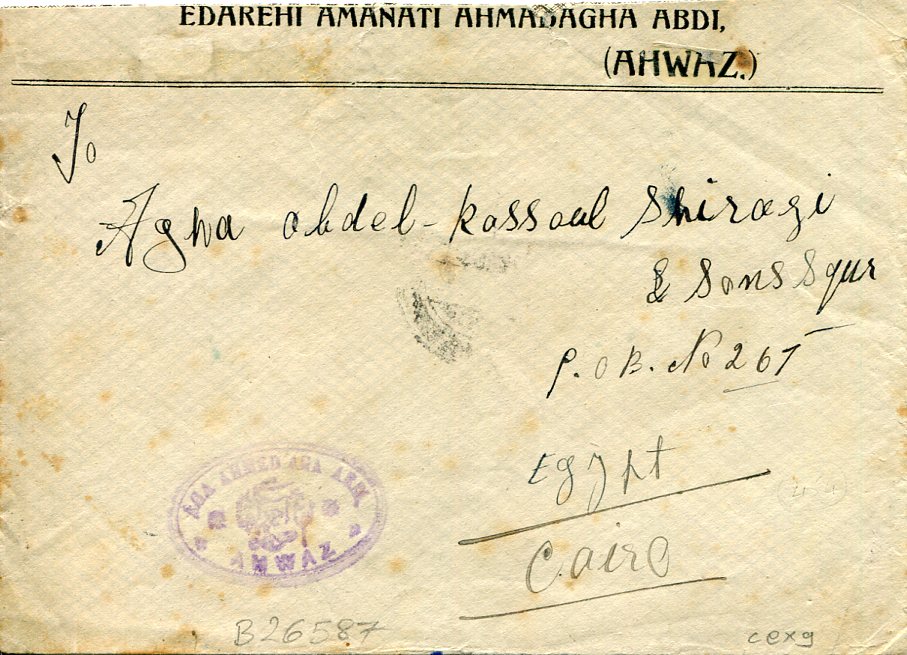 EDAREHI AMANATI AHMADAGHA ABDI,
(AHWAZ.)
To
Agha abdel-Rassoul Shirazi
& Sons Squr
P.OB. No 265
Egypt
Cairo
AGA AHMED AGA
AHWAZ
B26587
cexg